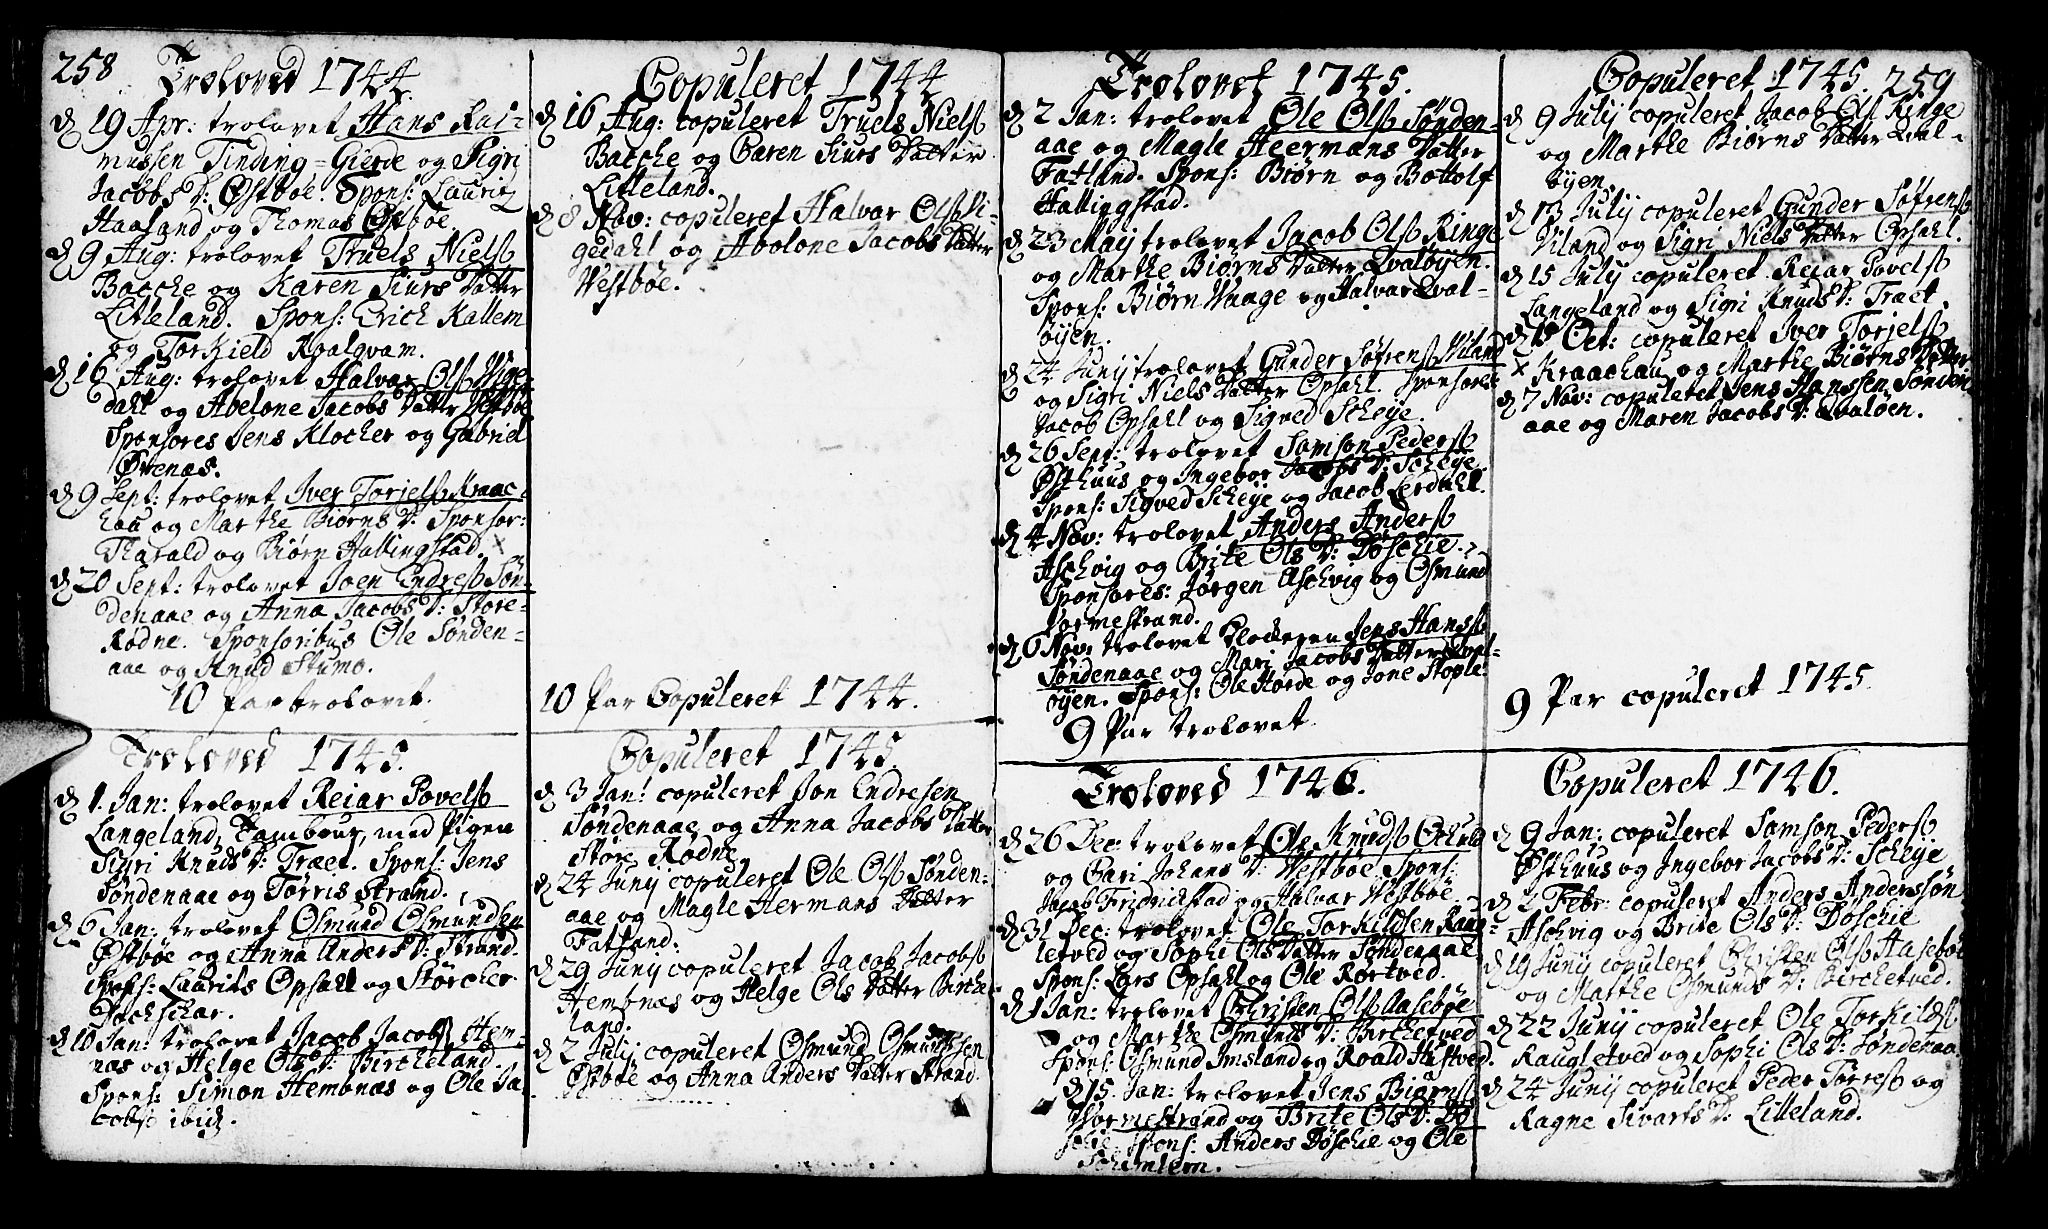 258
Troloved 1744
D 19 Apr: trolovet Hans Ras-
mussen Tinding=Gierde og Sigri
Jacobs D: Østbøe. Spons: Lauritz
Haaland og Thomas Østbøe
D 9 Aug: trolovet Truels Niels
Bacche og Karen Siurs Datter
Litleland. Spons: Erich Kallem
og Torkield Roalqvam.
D 16 Aug: trolovet Halvar Ols Vige-
dahl og Abelone Jacobs Datter Westbøe
Sponsores Jens Klocher og Gabriel
Øvrenæs.
D 9 Sept: trolovet Iver Torjels Kraac-
hau og Marthe Biørns D: Sponsor:
Tharald og Biørn Hallingstad. x
D 20 Sept: trolovet Joen Endres Søn-
denaae og Anna Jacobs D: Store-
Rødne. Sponsoribus Ole Sønden-
aae og Knud Stumo.
10 Par trolovet.
Troloved 1745.
D 1. Jan: trolovet Reiar Povels
Langeland, Tambour, med Pigen
Sigri Knuds D: Træet. Spons: Jens
Søndenaae og Tørris Strand.
D 6 Jan: trolovet Osmund Osmundsen
Østbøe og Anna Anders D: Strand.
Spons: Laurits Opsahl og Størcher
Dochschar.
D 10 Jan: trolovet Jacob Jacobs Hem-
næs og Helge Ols D: Bircheland.
Spons: Simon Hembnæs og Ole Ja-
cobs ibid.
Copuleret 1744
D 16 Aug: copuleret Truels Niels
Bacche og Caren Siurs Datter
Litleland.
D 8 Nov: copuleret Halvar Ols Vi-
gedahl og Abolone Jacobs Datter
Westbøe.
10 Par Copuleret 1744.
Copuleret 1745.
D 3 Jan: copuleret Jon Endresen
Søndenaae og Anna Jacobs Datter
Store Rødne
D 24 Junij copuleret Ole Ols Sønden-
aae og Magle Hermans Datter
Fatland:
D 29 Junij copuleret Jacob Jacobs
Hembnæs og Helge Ols Datter Birche-
land.
D 2 Julij copuleret Osmund Osmundsen
Østbøe og Anna Anders Datter Strand.
Trolovet 1745.
D 2 Jan: trolovet Ole Ols Sønden-
aae og Magle Heermans Datter
Fatland. Spons: Biørn og Bottolf
Hallingstad.
D 23 Maij trolovet Jacob Ols Ringe
og Marthe Biørns Datter Qvaløyen.
Spons: Biørn Waage og Halvar Qval-
øyen.
D 24 Junij trolovet Gunder Søfrens Viland
og Sigri Niels Datter Opsahl. Sponsores
Jacob Opsahl og Sigved Scheye.
D 26 Sept: trolovet Samson Peders
Østhuus og Ingebor Jacobs D: Scheye
Spons: Sigved Scheye og Jacob Lerdahl.
D 4 Nov: trolovet Anders Anders
Aschvig og Brite Ols D: Døschie.
Sponsores: Jørgen Aschvig og Osmund
Vormestrand.
D 6 Nov: trolovet Jens Hans
Søndenaae og Mari Jacobs Datter Qval-
øyen. Spons: Ole Horde og Jone Stople
9 Par trolovet
Troloved 1746.
D 26 Dec: trolovet Ole Knuds
og Gari Johans D: Westbøe Spons:
Jacob Fridrichstad og Halvar Westbøe.
D 31 Dec: trolovet Ole Torkildsen Raug-
letved og Sophi Ols Datter Søndenaae
Spons: Lars Opsahl og Ole Rørtved.
D 1 Jan: trolovet Christen Ols Aasebøe
og Marthe Osmunds D: Birchetved
Spons: Osmund Imsland og Roald Hustved.
D 15. Jan: trolovet Jens Biørns
Wormestrand og Brite Ols D: Dø-
schie Spons: Anders Døschie og Ole
Copuleret 1745. 259
D 9 Julij copuleret Jacob Ols Ringe
og Marthe Biørns Datter Qval-
øyen
D 13 Julij copuleret Gunder Søfrens
Viland og Sigri Niels Datter Opsahl.
D 15 Julij copuleret Reiar Povels
Langeland og Sigri Knuds D: Træet.
D Oct: copuleret Iver Torjels
x Kraachau og Marthe Biørns Datter
D 7 Nov: copuleret Jens Hanssen Sønden-
aae og Maren Jacobs D: Qvaløen.
9 Par copuleret 1745.
Copuleret 1746.
D 9 Jan: copuleret Samson Peders
Østhuus og Ingebor Jacobs D: Scheye
D 2 Febr: copuleret Anders Anderssøn
Aschvig og Brite Ols D: Døschie
D 19 Junij copuleret Christen Ols Aasebøe
og Marthe Osmunds D: Birchetved.
D 22 Junij copuleret Ole Torkilds
Raugletved og Sophi Ols D: Søndenaa
D 24 Junij copuleret Peder Tørres og
Ragne Sivarts D: Lilleland.